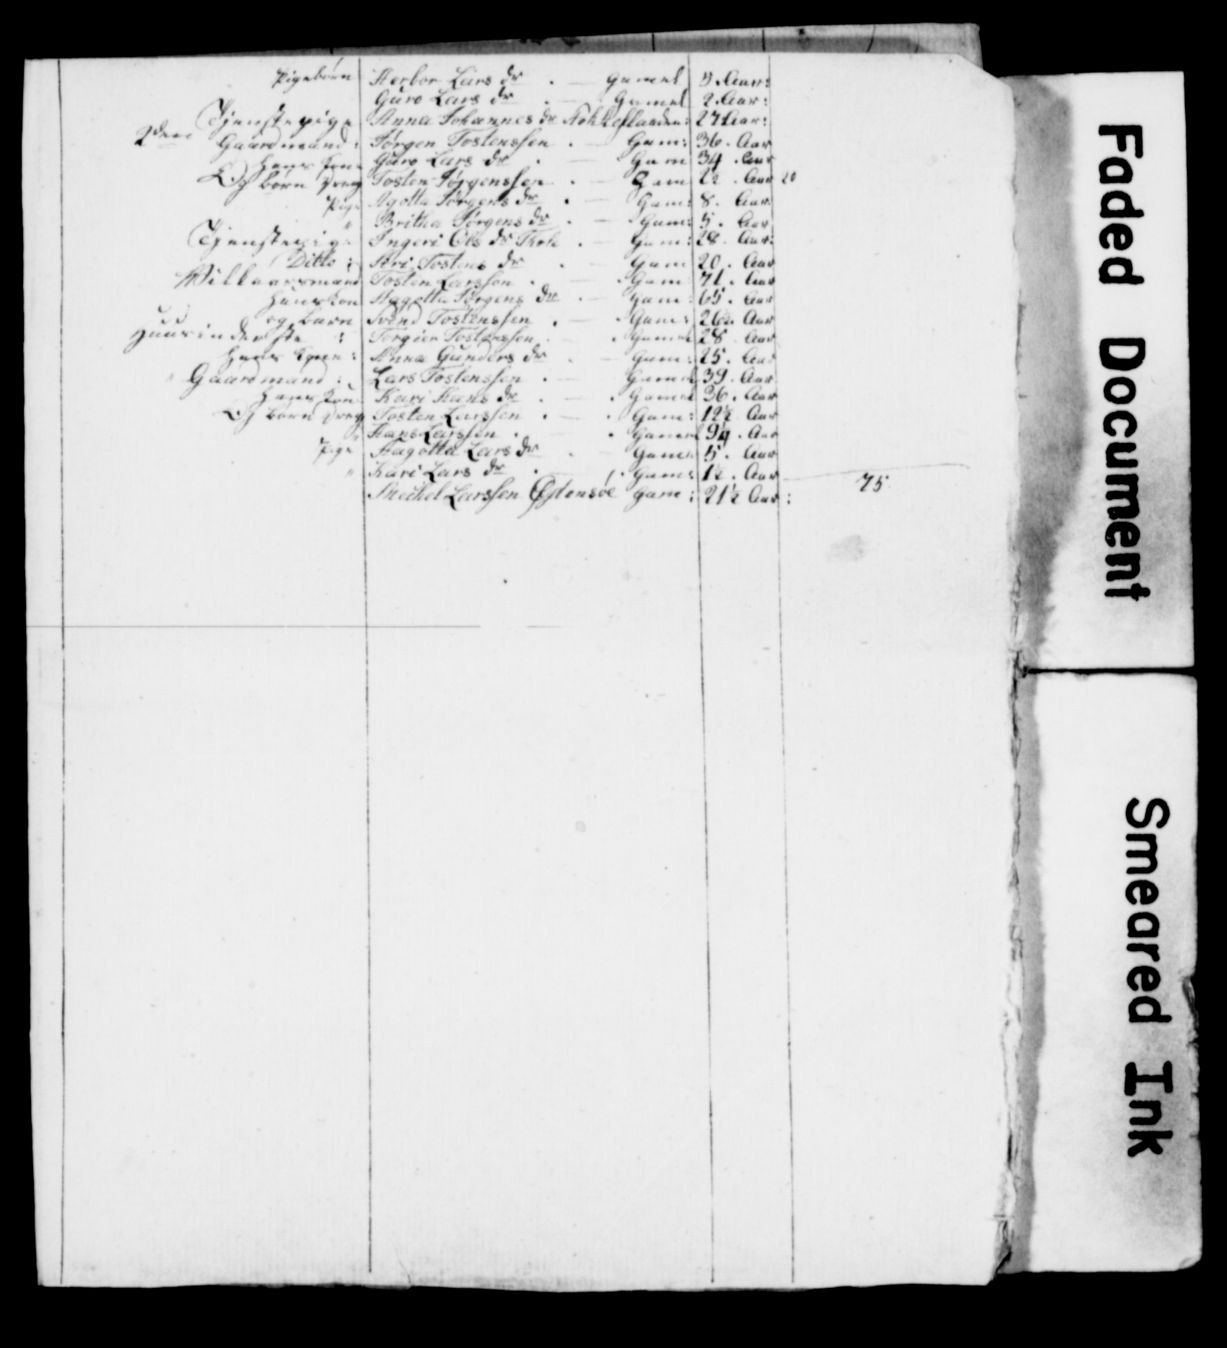 Pigebørn Herbor Lars dr . — Gamel 3 Aar:
Guro Lars dr . — Gamel 2 Aar:
Tjenstepige Anna Johannes dr 27 Aar:
2den Gaardmand: Jørgen Tostenssen . — Gam: 36 . Aar
Hans Kone Guro Lars dr . — Gam 34 . Aar
Og børn Dreng Tosten Jørgenssen . — Gam 2½ . Aar 20
Pige Agotta Jørgens dr . — Gam: 8 . Aar
" Britha Jørgens dr . — Gam: 5 . Aar
Tjenstepige Ingeri Ols dr . — Gam: 28 . Aar:
Ditto : Siri Tostens dr . — Gam 20 . Aar
Wilkaarsmand Tosten Larssen . — Gam 71 . Aar
Hans Kone Aagotta Jørgens dr . — Gam: 65 . Aar
og barn Svend Tostenssen . — Gam: Aar
Huusinderste : Torger Tostenssen . Gamel 28 . Aar
Hans Kone : Anna Gunders dr . — Gam: 25 . Aar
" Gaardmand : Lars Tostenssen . — Gamel 39 . Aar
Hans Kone Kari Hans dr . — Gamel 36 . Aar
Og børn Dreng Tosten Larssen . — Gam: 12½ Aar
" Hans Larssen . — Gamel 9¼ . Aar
Pige Aagotta Lars dr — Gam: 5 . Aar
" Kari Lars dr . Gam: 1½ . Aar
Michel Larssen Øystensøe Gam: 21½ Aar: 75
Faded Document
Smeared Ink